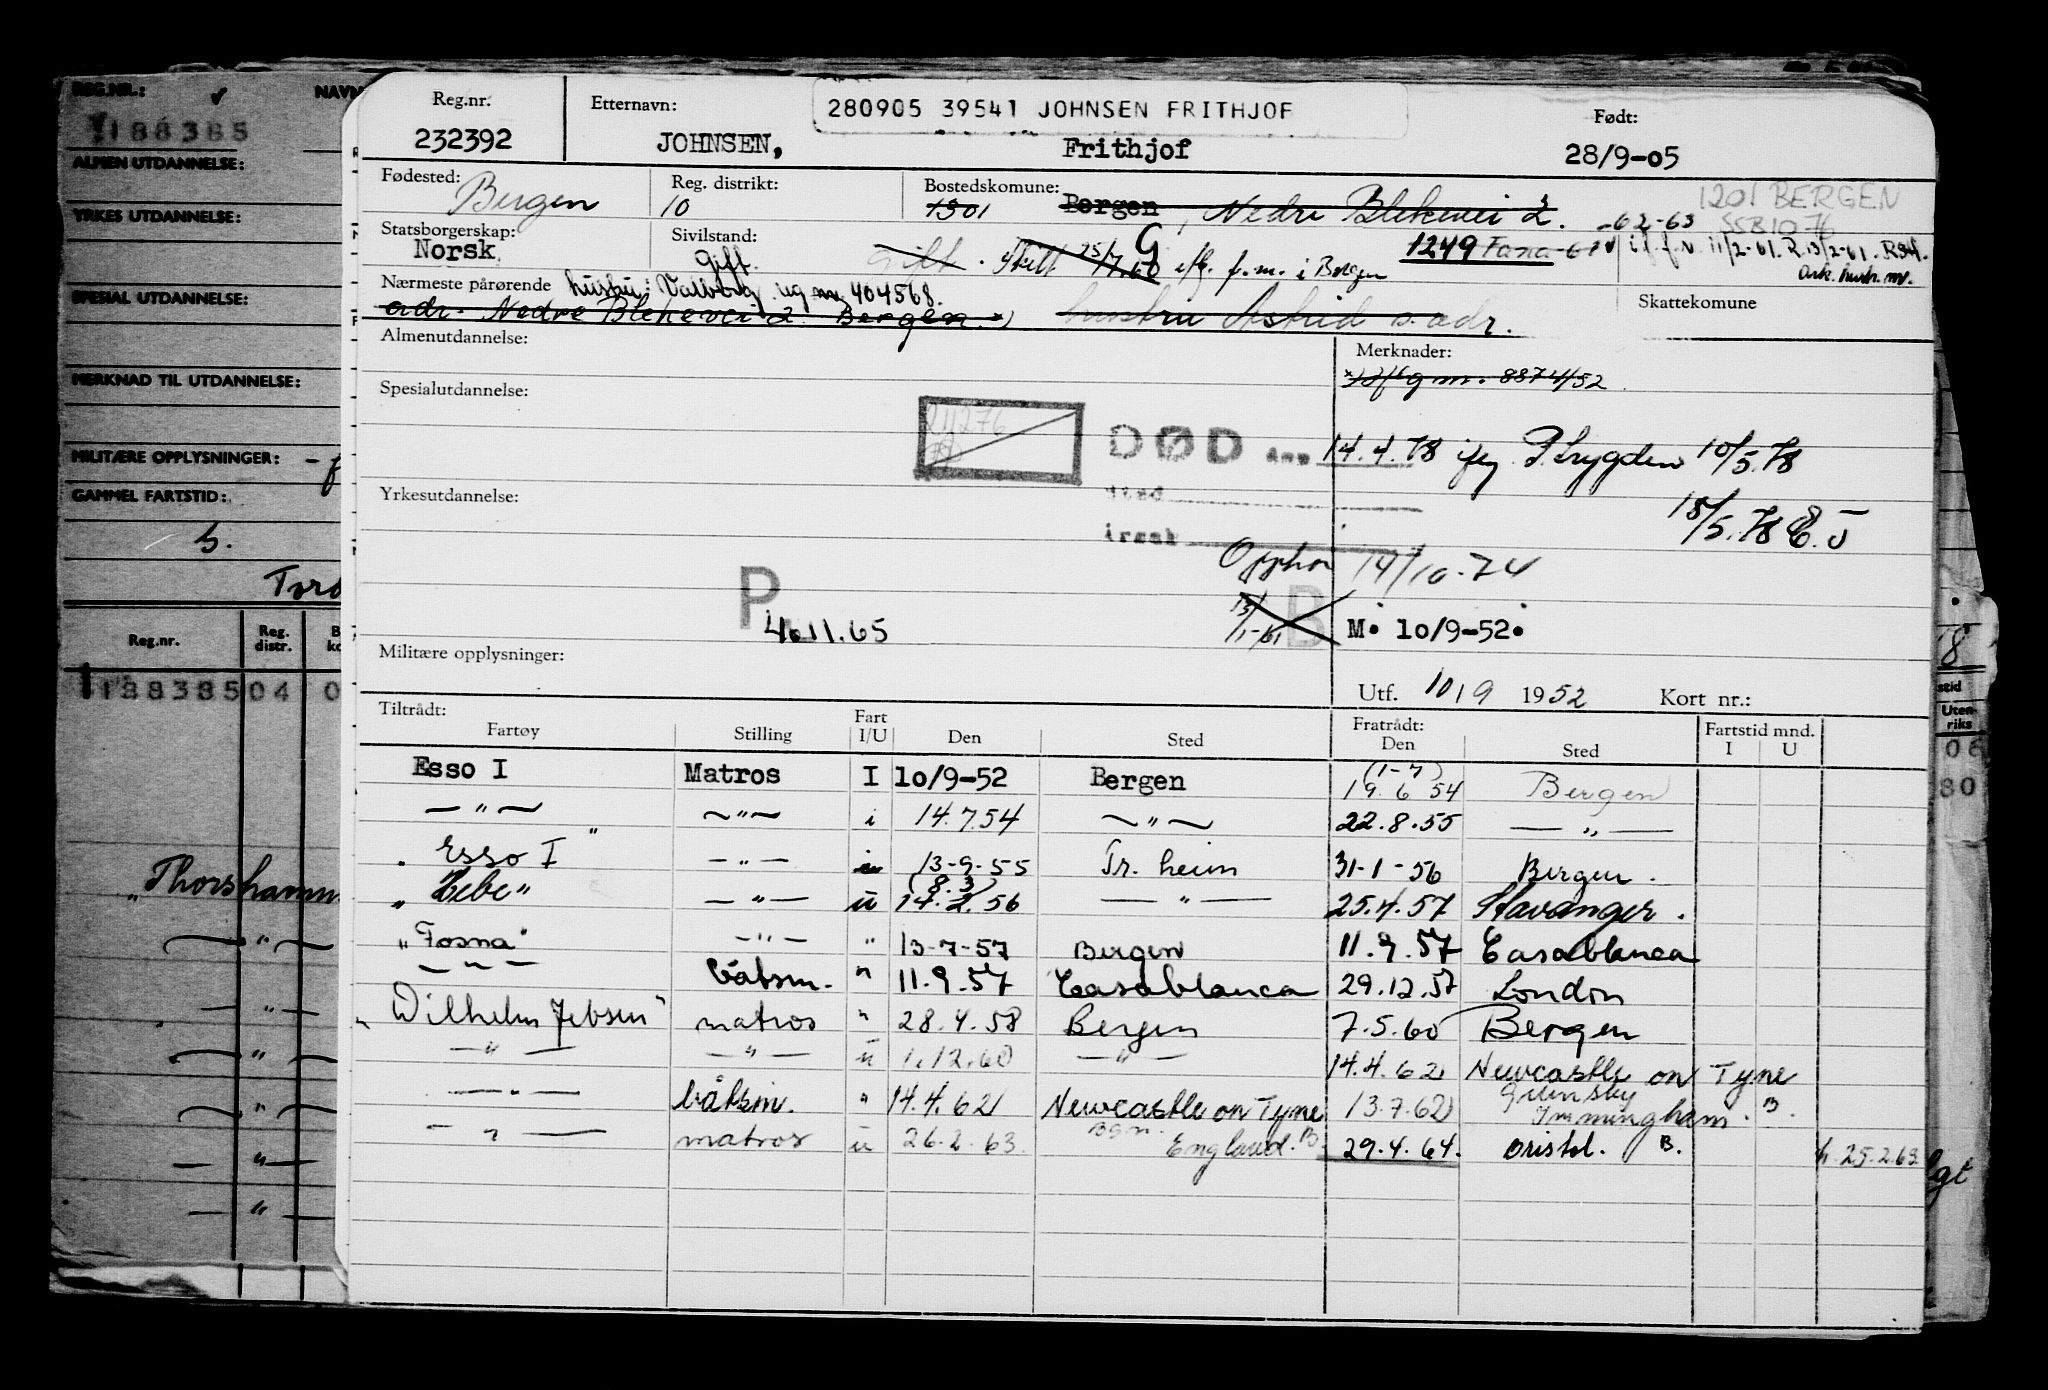 REG.NR.: NAVN
188385
ALMEN UTDANNELSE:
YRKES UTDANNELSE:
SPESIAL UTDANNELSE:
MERKNAD TIL UTDANNELSE:
MILITÆRE OPPLYSNINGER:
GAMMEL FARTSTID:
Reg.nr. Reg. distr.
188385 04 0
"Thorshamm
— " —
— " —
— " —
— " —
— " —
— " —
Reg.nr. Etternavn: 280905 39541 JOHNSEN FRITHJOF Født:
232392 JOHNSEN, Frithjof 28/9-05
Fødested: Reg. distrikt: Bostedskomune: 1201 BERGEN
Bergen 10 1301 Bergen, Nedre Blekevei 2. -62-63
Statsborgerskap: Sivilstand: G 1249 Fana
Norsk Gift. gift. Skilt 25/7.60 f.m. i Bergen
Nærmeste pårørende hustru: Valborg 404568. Skattekomune
adr. Nedre Blekevei 2 Bergen x) hustru Astrid s. adr.
Almenutdannelse: Merknader:
8874/52
Spesialutdannelse:
DØD den 14.4.78 10/5.78
sted
Yrkesutdannelse: 18/5.78
årsak
Opphør 14/10-74
P B
4.11.65 13/1-61 M. 10/9-52.
Militære opplysninger:
Utf. 10/9 1952 Kort nr.:
Tiltrådt: Fratrådt: Fartstid mnd.
Fartøy Stilling Fart I/U Den Sted Den Sted I U
Esso I Matros I 10/9-52 Bergen (1-7) 19.6 54 Bergen
— " — — " — i 14.7.54 — " — 22.8.55 — " —
" Esso I" — " — 13-9-55 Tr. heim 31-1-56 Bergen.
"Hebe" — " — u (8.3) 14.2.56 — " — 25.4.57 Stavanger.
"Fosna" — " — " 13-7-57 Bergen 11.9.57 Casablanca
— " — båtsm. " 11.9.57 Casablanca 29.12.57 London
"Wilhelm Jebsen" matros " 28.4.58 Bergen 7.5.60 Bergen
— " — — " — u 1.12.60 — " — 14.4.62 Newcastle on Tyne
— " — båtsm. " 14.4.62 Newcastle on Tyne 13.7.62 Grimsby Immingham. B.
— " — matros u 26.2.63. Bgn. England. B. 29.4.64. B. 25.2.63